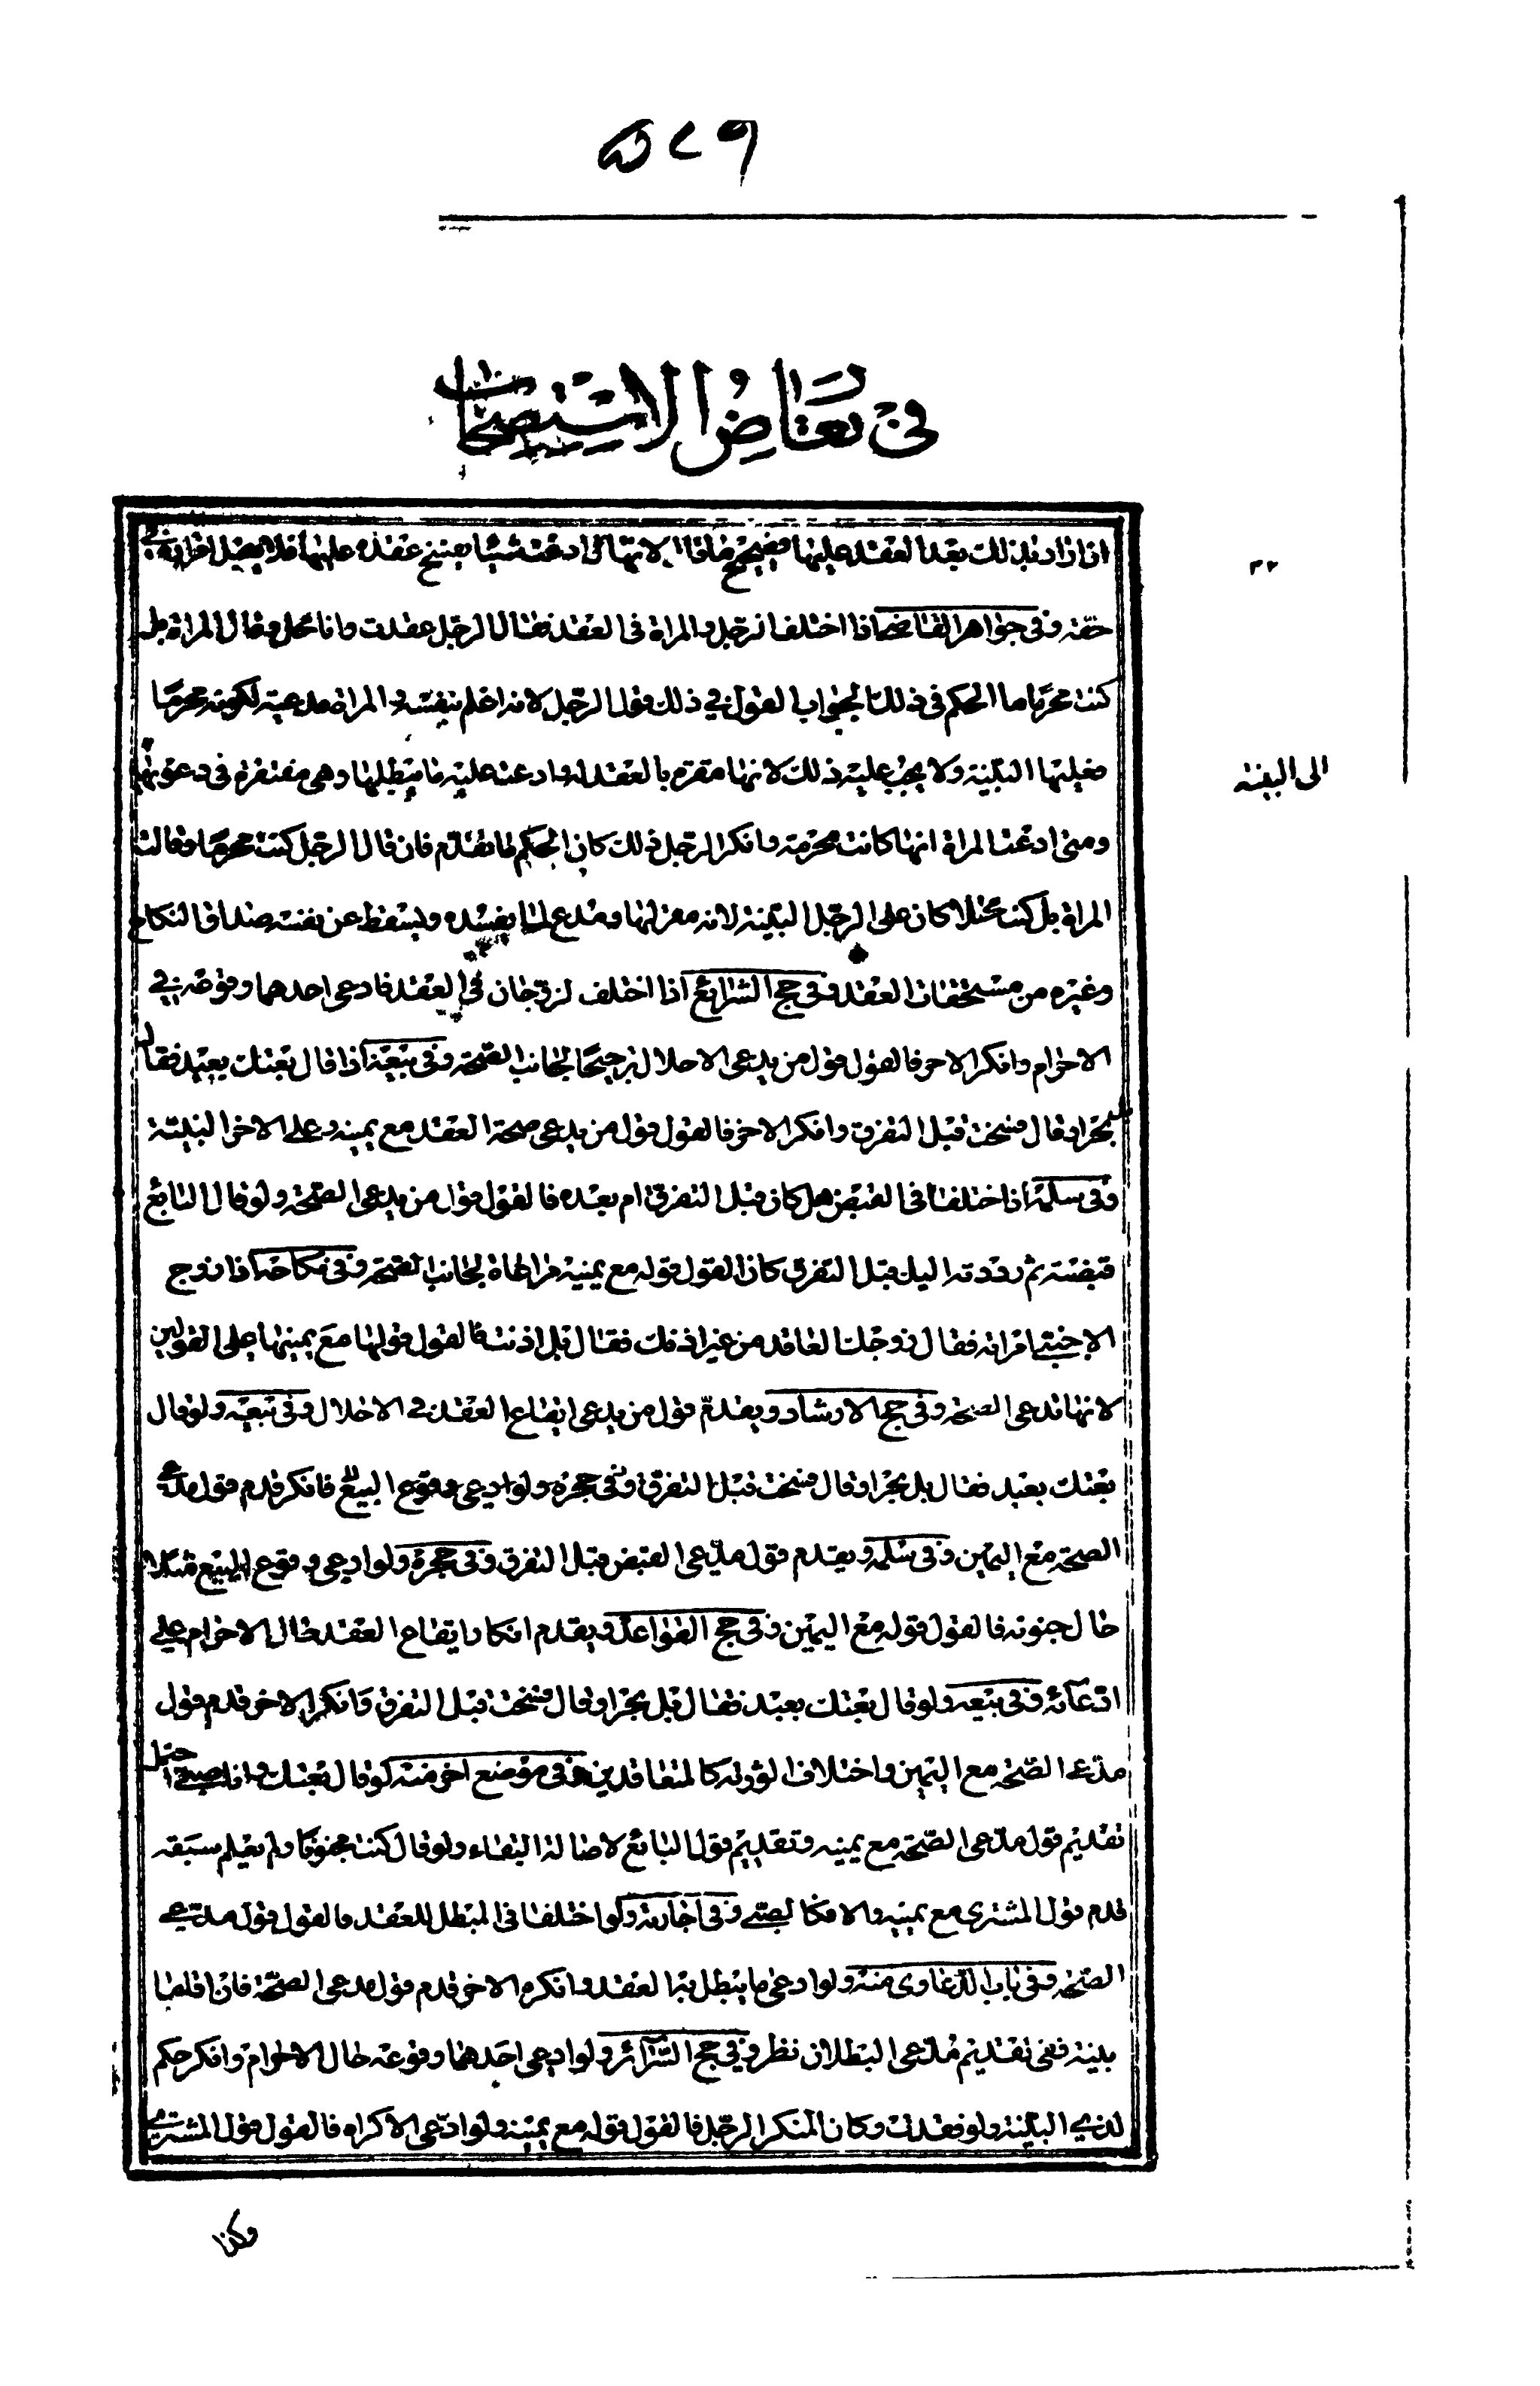 ٥٢٩
في تعارض الاستصحاب
اذا زاد بذلك بعد العقد عليها فصحيح ما قال لانها اذا ادعت شيئا يفسخ عقده عليها فلا يقبل اقرارها في
حقه وفى جواهر القاضى اذا اختلف الرجل والمراة فى العقد فقال الرجل عقدت وانا محل وقال المراة بل
كنت محرما ما الحكم فى ذلك الجواب القول فى ذلك قول الرجل لانه اعلم بنفسه والمراة مدعية لكونه محرما
فعليها البينة ولا يجب عليه ذلك لانها مقرة بالعقد له وادعت عليه ما يبطلها وهى مفتقرة فى دعويها
الى البينه
ومتى ادعت المراة انها كانت محرمة وانكر الرجل ذلك كان الحكم ما تقدم فان قال الرجل كنت محرما وقالت
المراة بل كنت محلا كان على الرجل البينة لانه مقر لها ومدع لما يفسده ويسقط عن نفسه صداق النكاح
وغيره من مستحقات العقد وفى حج الشرايع اذا اختلف الزوجان في العقد فادعى احدهما وقوعه في
الاحرام وانكر الاخر فالقول قول من يدعى الاحلال ترجيحا لجانب الصحة وفى بيعه اذا قال بعتك بعبد فقال
بل بحر او قال فسخت قبل التفرق وانكر الاخر فالقول قول من يدعى صحة العقد مع يمينه وعلى الاخر البينة
وفى سلمه اذا اختلفا فى القبض هل كان قبل التفرق ام بعده فالقول قول من يدعى الصحة ولو قال البائع
قبضته ثم رددته اليك قبل التفرق كان القول قوله مع يمينه مراعاة لجانب الصحة وفى نكاحه اذا زوج
الاجنبى امراة فقال زوجك العاقد من غير اذنك فقال بل اذنت فالقول قولها مع يمينها على القولين
لانها تدعى الصحة وفى حج الارشاد ويقدم قول من يدعى ايقاع العقد فى الاحلال وفى بيعه ولو قال
بعتك بعبد فقال بل بحر او قال فسخت قبل التفرق وفى حجره ولو ادعى وقوع البيع فانكر قدم قول مدعى
الصحة مع اليمين وفى سلمه ويقدم قول مدعى القبض قبل التفرق وفى حجره ولو ادعى وقوع البيع مثلا
حال جنونه فالقول قوله مع اليمين وفى حج القواعد ويقدم انكار ايقاع العقد حال الاحرام على
ادعائه وفى بيعه ولو قال بعتك بعبد فقال بل بحر او قال فسخت قبل التفرق وانكر الاخر قدم قول
مدعى الصحة مع اليمين واختلاف الورثة كالمتعاقدين وفى موضع اخر منه لو قال بعتك وانا صبى احتمل
تقديم قول مدعى الصحة مع يمينه وتقديم قول البائع لاصالة البقاء ولو قال كنت مجنونا ولم يعلم سبقه
قدم قول المشترى مع يمينه والا فكالصبى وفى اجارته ولو اختلفا فى المبطل للعقد فالقول قول مدعى
الصحة وفى باب الدعاوى منه ولو ادعى ما يبطل به العقد وانكره الاخر قدم قول مدعى الصحة فان اقاما
بينة ففى تقديم مدعى البطلان نظر وفى حج السرائر ولو ادعى احدهما وقوعه حال الاحرام وانكر حكم
لذى البينة ولو فقدت وكان المنكر الرجل فالقول قوله مع يمينه ولو ادعى الاكراه فالقول قول المشترى
وكذا